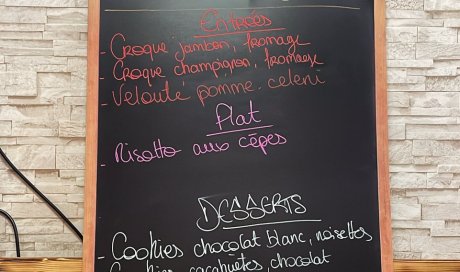 Entrées
- Croque jambon, fromage
- Croque champignon, fromage
- Velouté pomme. celeri
Plat
- Risotto aux cèpes
DESSERTS
- Cookies chocolat blanc, noisettes
Cookies cacahuètes, chocolat